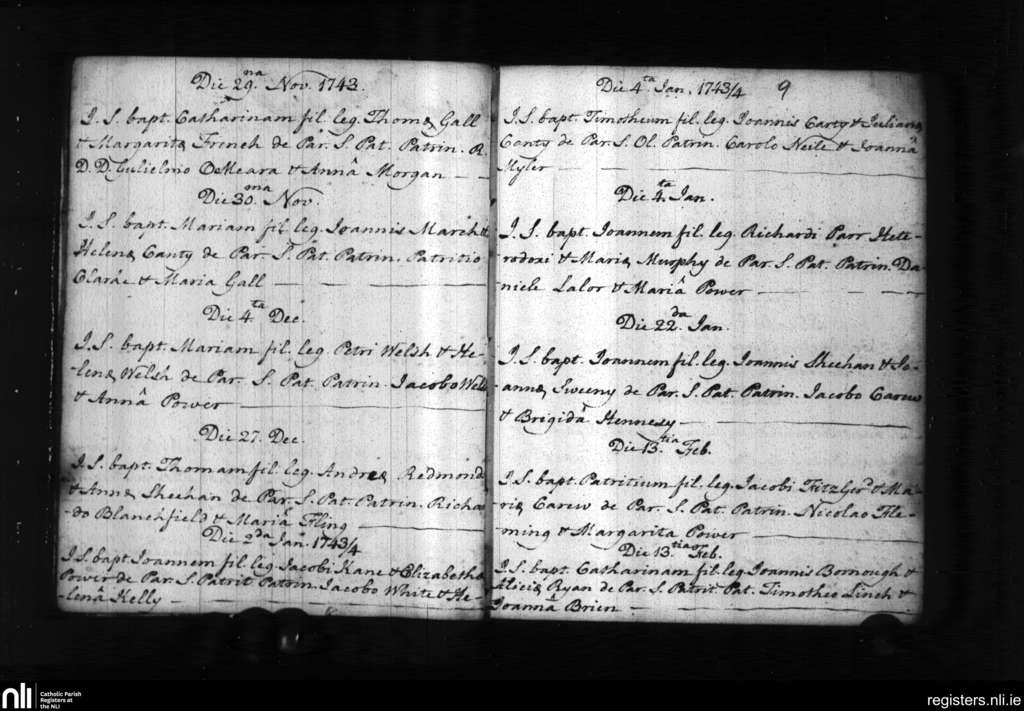 Die 29.na Nov. 1743.
I. S. bapt. Catharinam fil. leg. Thomæ Gall
& Margaritæ French de Par. S. Pat. Patrin. R.
D. D. Gulielmo OMeara & Annâ Morgan
Die 30.ma Nov.
I. S. bapt. Mariam fil. leg. Joannis March &
Helenæ Canty de Par. S. Pat. Patrin. Patritio
& Maria Gall
Die 4.ta Dec.
I. S. bapt. Mariam fil. leg. Petri Welsh & He-
lenæ Welsh de Par. S. Pat. Patrin. Jacobo Welsh
& Annâ Power
Die 27. Dec.
I. S. bapt. Thomam fil. leg. Andreæ Redmond
& Annæ Sheehan de Par. S. Pat. Patrin. Richar
do Blanchfield & Mariâ Fling
Die 2.da Jan. 1743/4
I. S. bapt. Joannem fil. leg. Jacobi Kane & Elizabethæ
Power de Par. S. Patrit. Patrin. Jacobo White & He-
lenâ Kelly
Die 4.ta Jan. 1743/4 9
I. S. bapt. Timotheum fil. leg. Joannis Carty & Julianæ
Canty de Par. S. Ol. Patrin. Carolo Neile & Joannâ
Hyler
Die 4.ta Jan.
I. S. bapt. Joannem fil. leg. Richardi Parr Hete-
rodoxi & Mariæ Murphy de Par. S. Pat. Patrin. Da-
niele Lalor & Mariâ Power
Die 22.da Jan.
I. S. bapt. Joannem fil. leg. Joannis Sheehan & Jo-
annæ Sweeny de Par. S. Pat. Patrin. Jacobo Carew
& Brigidâ Hennesy
Die 13.tia Feb.
I. S. bapt. Patritium fil. leg. Jacobi FitzGerd & Ma-
riæ Carew de Par. S. Pat. Patrin. Nicolao Fle-
ming & Margarita Power
Die 13.tia Feb.
I. S. bapt. Catharinam fil. leg. Joannis Bornough &
Aliciæ Ryan de Par. S. Patrit. Pat. Timotheo Linch &
Joannâ Brien
nli Catholic Parish
Registers at
the NLI
registers.nli.ie